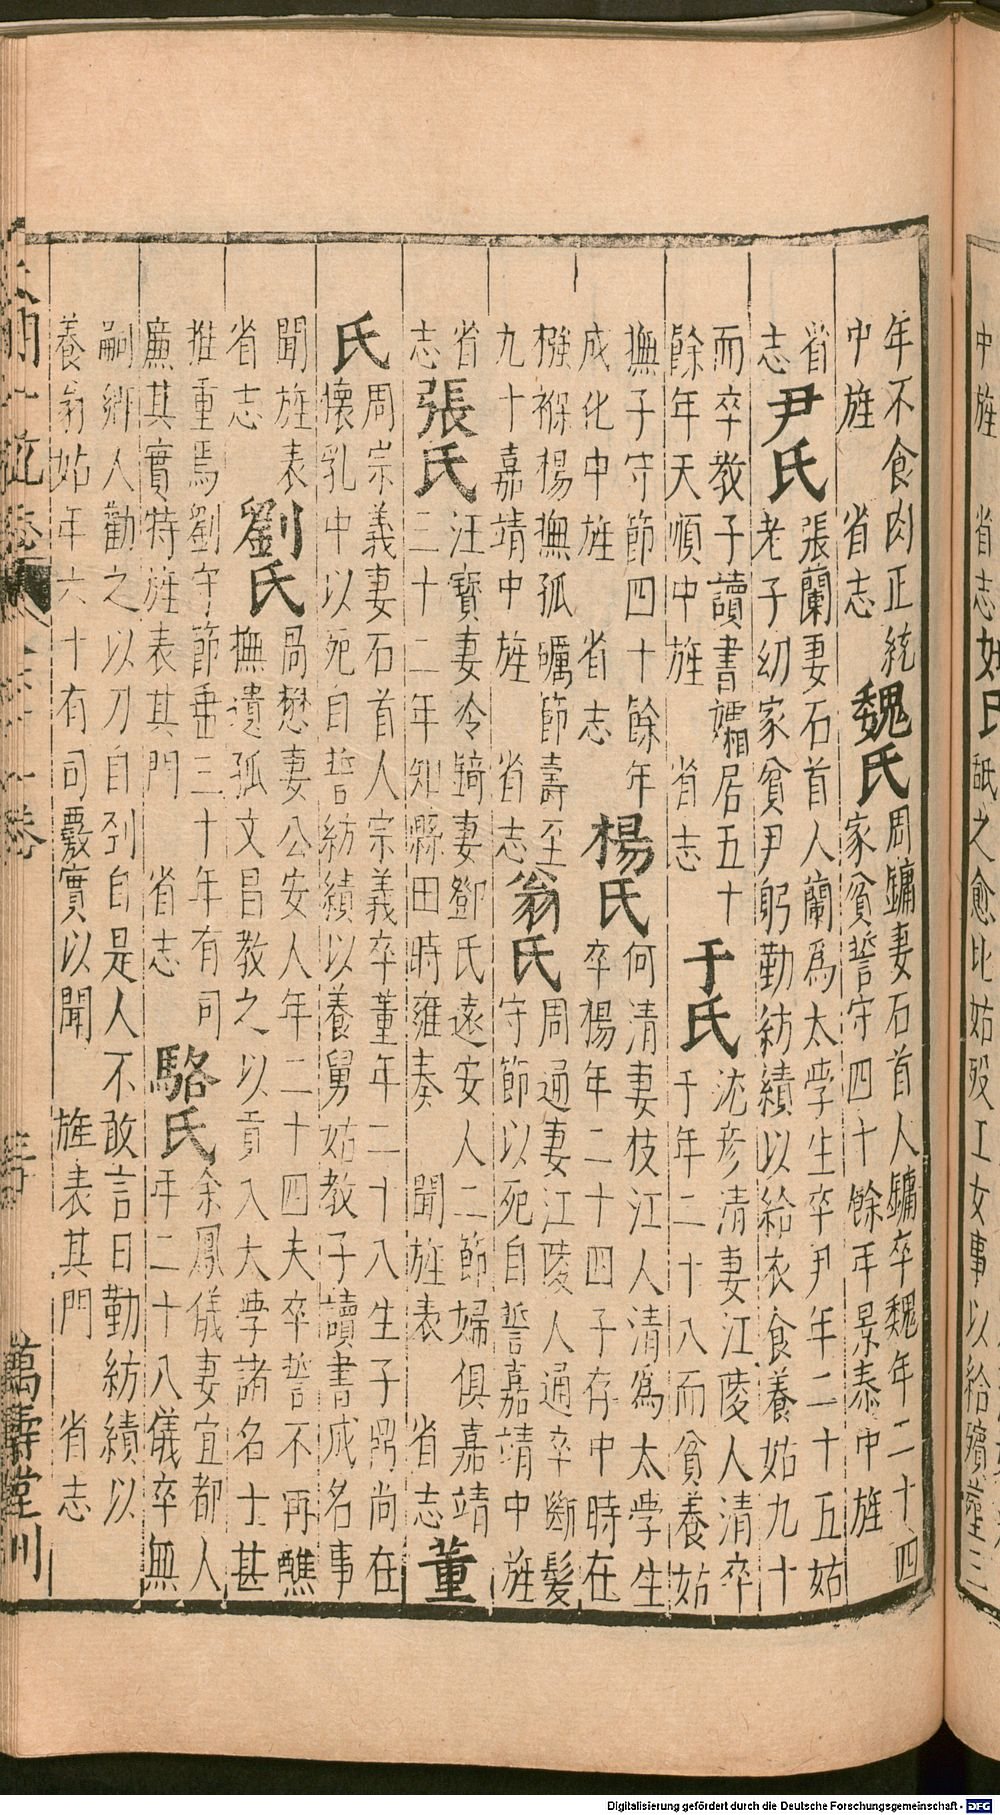 中旌　省志
舐之愈比姑歿工女事以給殯塟三
年不食肉正統
中旌　省志
魏氏
周鏞妻石首人鏞卒魏年二十四
家貧誓守四十餘年景泰中旌
省
志
尹氏
張蘭妻石首人蘭爲太學生卒尹年二十五姑
老子幼家貧尹躬勤紡績以給衣食養姑九十
而卒教子讀書孀居五十
餘年天順中旌　省志
于氏
沈彦清妻江陵人清卒
于年二十八而貧養姑
撫子守節四十餘年
成化中旌　省志
楊氏
何清妻枝江人清爲太學生
卒楊年二十四子存中時在
襁褓楊撫孤礪節壽至
九十嘉靖中旌　省志
翁氏
周通妻江陵人通卒斷髮
守節以死自誓嘉靖中旌
省
志
張氏
汪寳妻冷錡妻鄧氏遠安人二節婦俱嘉靖
二十二年知縣田時雍奏　聞旌表　省志
董
氏
周宗義妻石首人宗義卒董年二十八生子鼎尚在
懷乳中以死自誓紡績以養舅姑教子讀書成名事
聞旌表
省志
劉氏
咼懋妻公安人年二十四夫卒誓不再醮
撫遺孤文昌教之以貢入大學諸名士甚
推重焉劉守節垂三十年有司
廉其實特旌表其門　省志
駱氏
余鳳儀妻宜都人
年二十八儀卒無
嗣鄉人勸之以刀自刎自是人不敢言日勤紡績以
養翁姑年六十有司覈實以聞　旌表其門　省志
萬壽堂刊
Digitalisierung gefördert durch die Deutsche Forschungsgemeinschaft - DFG